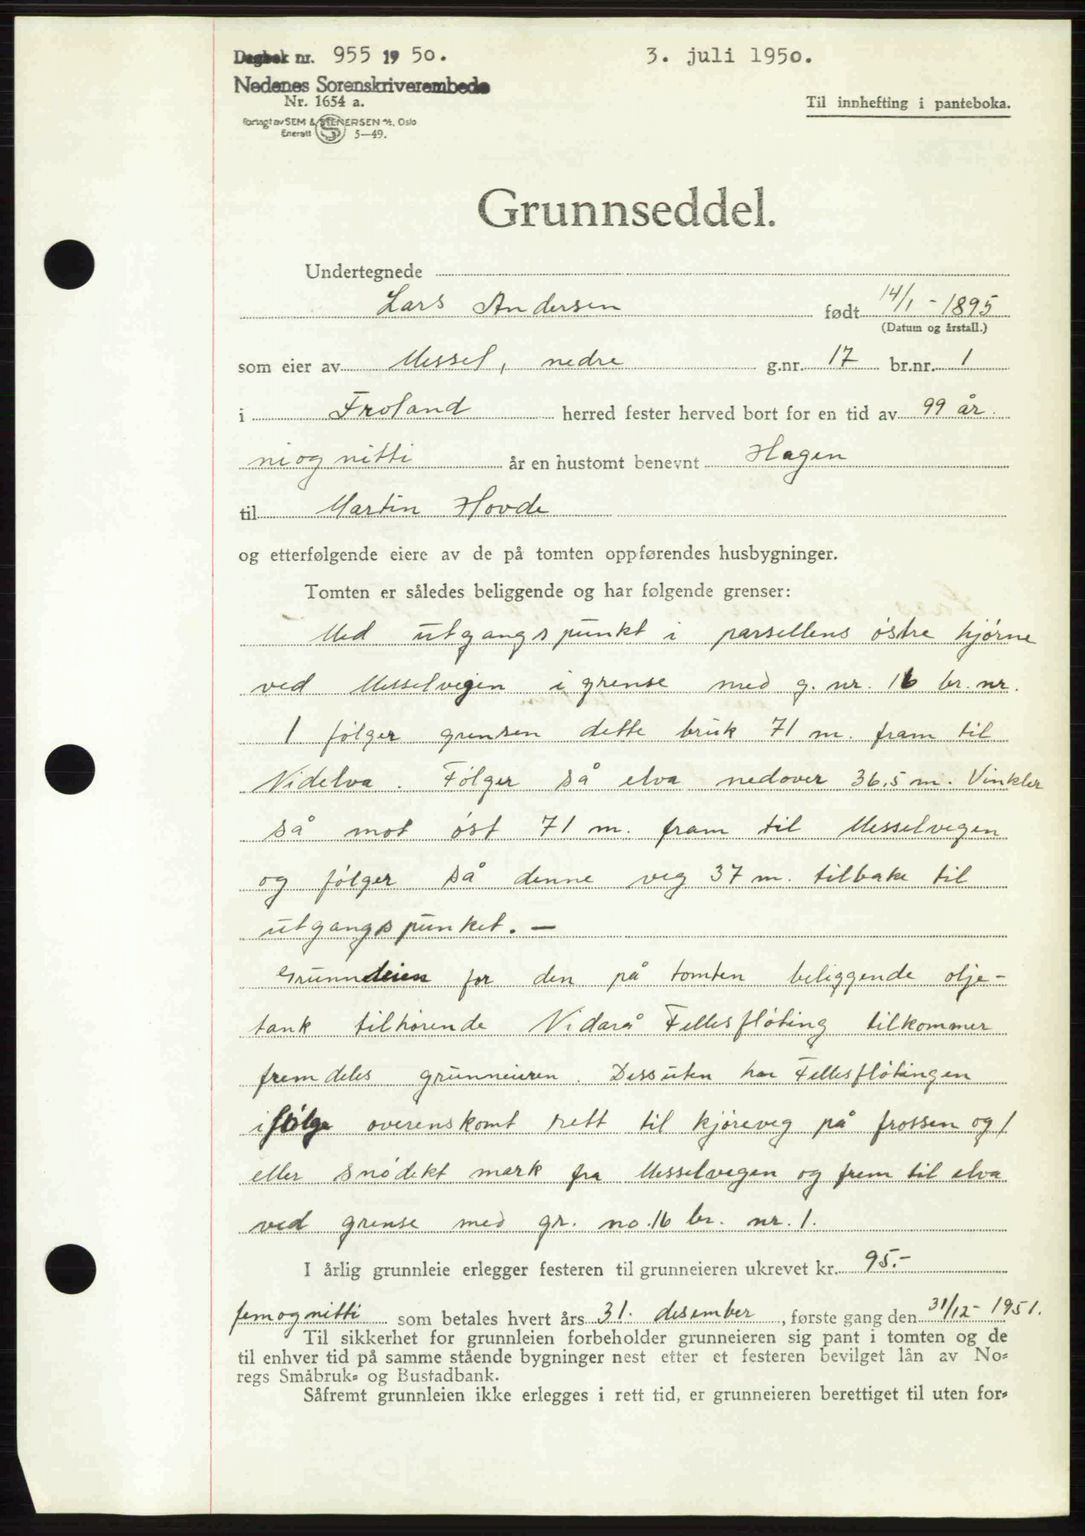 Dagbok nr. 955 1950.
3. juli 1950.
Nedenes Sorenskriverembede
Nr. 1654 a.
Til innhefting i panteboka.
Forlagt av SEM & STENERSEN A/S, Oslo
Enerett S 5—49.
Grunnseddel.
Undertegnede
Lars Andersen født 14/1 - 1895
(Datum og årstall.)
som eier av Messel, nedre g.nr. 17 br.nr. 1
i Froland herred fester herved bort for en tid av 99 år.
niognitti år en hustomt benevnt Hagen
til Martin Hovde
og etterfølgende eiere av de på tomten oppførendes husbygninger.
Tomten er således beliggende og har følgende grenser:
Med utgangspunkt i parsellens østre hjørne
ved Messelvegen i grense med g. nr. 16 br. nr.
1 følger grensen dette bruk 71 m. fram til
Nidelva. Følger så elva nedover 36,5 m. Vinkler
så mot øst 71 m. fram til Messelvegen
og følger så denne veg 37 m. tilbake til
utgangspunket. —
Grunnleien for den på tomten beliggende olje-
tank tilhørende Nidarå Fellesfløting tilkommer
fremdeles grunneieren. Dessuten har Fellesfløtingen
ifølge overenskomt rett til kjøreveg på frossen og/
eller snødekt mark fra Messelvegen og frem til elva
ved grense med gr. no. 16 br. nr. 1.
I årlig grunnleie erlegger festeren til grunneieren ukrevet kr. 95.-
femognitti som betales hvert års 31. desember, første gang den 31/12 - 1951.
Til sikkerhet for grunnleien forbeholder grunneieren sig pant i tomten og de
til enhver tid på samme stående bygninger nest etter et festeren bevilget lån av No-
regs Småbruk- og Bustadbank.
Såfremt grunnleien ikke erlegges i rett tid, er grunneieren berettiget til uten for-